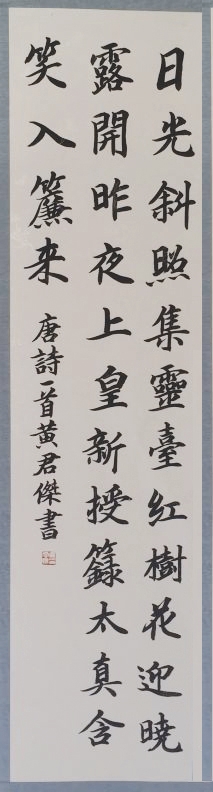 日光斜照集靈臺紅樹花迎曉
露開昨夜上皇新授籙太真含
笑入簾来
唐詩一首黄君傑書